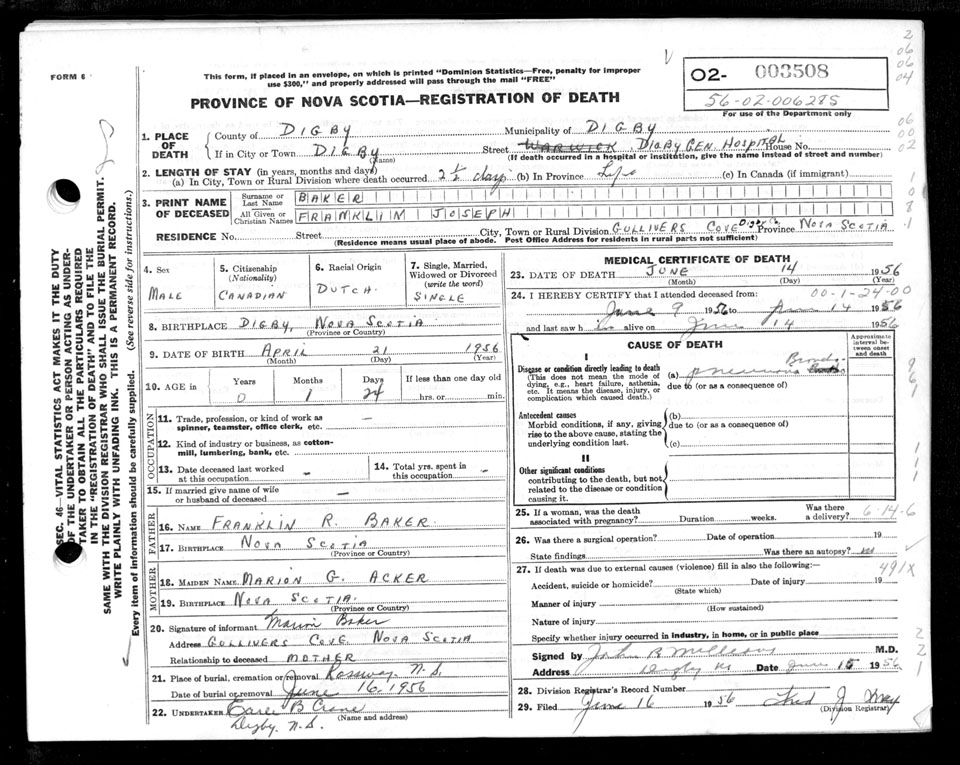 FORM 6
This form, if placed in an envelope, on which is printed "Dominion Statistics—Free, penalty for improper
use $300," and properly addressed will pass through the mail "FREE"
PROVINCE OF NOVA SCOTIA—REGISTRATION OF DEATH
O2- 003508
56-02-006285
For use of the Department only
2
06
06
04
06
00
02
1. PLACE OF DEATH
County of DIGBY Municipality of DIGBY
If in City or Town DIGBY Street WARWICK, DIGBY GEN. HOSPITAL House No.
(Name) (If death occurred in a hospital or institution, give the name instead of street and number)
2. LENGTH OF STAY (in years, months and days)
(a) In City, Town or Rural Division where death occurred 2 1/2 days (b) In Province Life (c) In Canada (if immigrant)
3. PRINT NAME OF DECEASED
Surname or Last Name BAKER
All Given or Christian Names FRANKLIM JOSEPH
RESIDENCE No. Street City, Town or Rural Division GULLIVERS COVE DIGBY Co. Province NOVA SCOTIA
(Residence means usual place of abode. Post Office Address for residents in rural parts not sufficient)
4. Sex MALE
5. Citizenship (Nationality) CANADIAN
6. Racial Origin DUTCH
7. Single, Married, Widowed or Divorced (write the word) SINGLE
8. BIRTHPLACE DIGBY, NOVA SCOTIA
(Province or Country)
9. DATE OF BIRTH APRIL 21 1956
(Month) (Day) (Year)
10. AGE in Years 0 Months 1 Days 24 If less than one day old hrs. or min.
OCCUPATION
11. Trade, profession, or kind of work as
spinner, teamster, office clerk, etc. –
12. Kind of industry or business, as cotton-
mill, lumbering, bank, etc.
13. Date deceased last worked
at this occupation –
14. Total yrs. spent in
this occupation –
15. If married give name of wife
or husband of deceased –
FATHER
16. NAME FRANKLIN R. BAKER
17. BIRTHPLACE NOVA SCOTIA
(Province or Country)
MOTHER
18. MAIDEN NAME MARION G. ACKER
19. BIRTHPLACE NOVA SCOTIA
(Province or Country)
20. Signature of informant Marion Baker
Address GULLIVERS COVE NOVA SCOTIA
Relationship to deceased MOTHER
21. Place of burial, cremation or removal Rossway, N.S.
Date of burial or removal June 16, 1956
22. UNDERTAKER Earle B Crane
(Name and address)
Digby, N.S.
MEDICAL CERTIFICATE OF DEATH
23. DATE OF DEATH JUNE 14 1956
(Month) (Day) (Year)
24. I HEREBY CERTIFY that I attended deceased from: 00-1-24-00
June 9 1956 to June 14 1956
and last saw him alive on June 14 1956
CAUSE OF DEATH
Approximate interval between onset and death
I
Disease or condition directly leading to death
(This does not mean the mode of
dying, e.g., heart failure, asthenia,
etc. It means the disease, injury, or
complication which caused death.)
(a) Broncho pneumonia
due to (or as a consequence of)
Antecedent causes
Morbid conditions, if any, giving
rise to the above cause, stating the
underlying condition last.
(b)
due to (or as a consequence of)
(c)
II
Other significant conditions
contributing to the death, but not
related to the disease or condition
causing it.
25. If a woman, was the death
associated with pregnancy? Duration weeks. Was there a delivery? 6-14-6
26. Was there a surgical operation? Date of operation 19
State findings Was there an autopsy? no
27. If death was due to external causes (violence) fill in also the following:— 491X
Accident, suicide or homicide? Date of injury 19
(State which)
Manner of injury
(How sustained)
Nature of injury
Specify whether injury occurred in industry, in home, or in public place
Signed by John R M.D.
Address Digby NS Date June 15 1956
28. Division Registrar's Record Number
29. Filed June 16 1956 Fred J
(Division Registrar)
SEC. 46—VITAL STATISTICS ACT MAKES IT THE DUTY
OF THE UNDERTAKER OR PERSON ACTING AS UNDER-
TAKER TO OBTAIN ALL THE PARTICULARS REQUIRED
IN THE "REGISTRATION OF DEATH" AND TO FILE THE
SAME WITH THE DIVISION REGISTRAR WHO SHALL ISSUE THE BURIAL PERMIT.
WRITE PLAINLY WITH UNFADING INK. THIS IS A PERMANENT RECORD.
Every item of information should be carefully supplied. (See reverse side for instructions.)